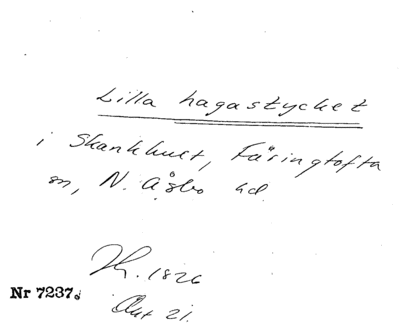 Lilla hagastycket
i Skankhult, Färingtofta
sn, N. Åsbo hd.
1826
Nr 7237.
21.